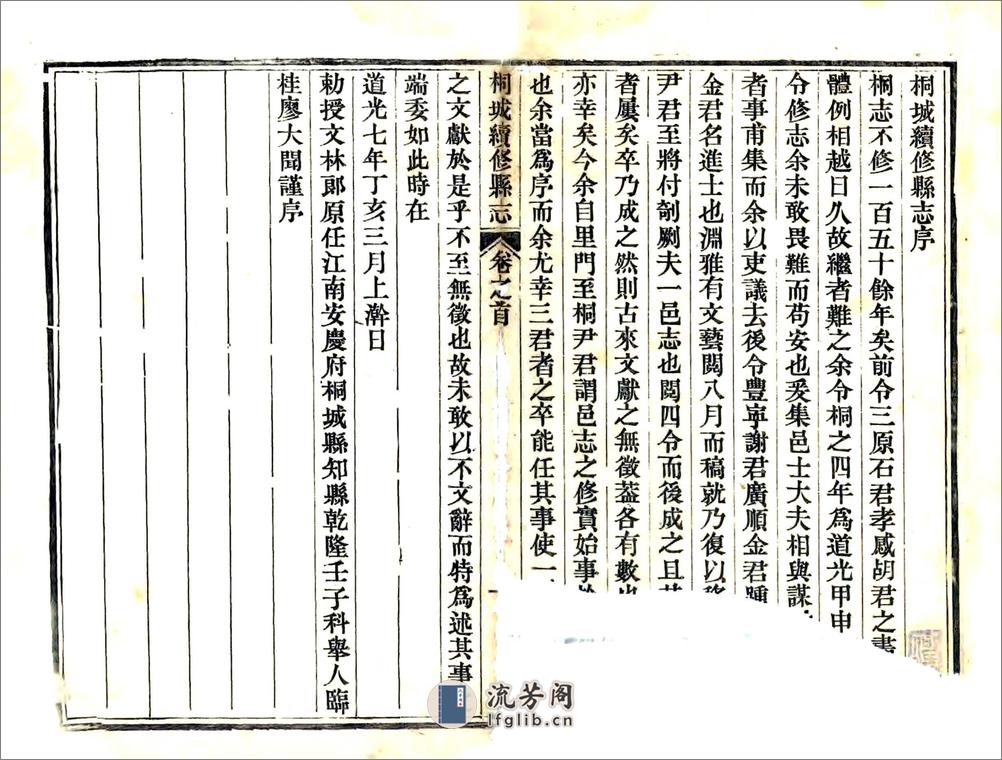 桐城續修縣志序
桐志不修一百五十餘年矣前令三原石君孝感胡君之書
體例相越日久故繼者難之余令桐之四年為道光甲申
令修志余未敢畏難而苟安也爰集邑士大夫相與謀
者事甫集而余以吏議去後令豐寧謝君廣順金君踵
金君名進士也淵雅有文藝閱八月而稿就乃復以
尹君至將付剞劂夫一邑志也閱四令而後成之且
者屢矣卒乃成之然則古來文獻之無徵蓋各有數
亦幸矣今余自里門至桐尹君謂邑志之修實始事
也余當為序而余尤幸三君者之卒能任其事使一
桐城續修縣志 卷之首
之文獻於是乎不至無徵也故未敢以不文辭而特為述其事
端委如此時在
道光七年丁亥三月上澣日
勅授文林郎原任江南安慶府桐城縣知縣乾隆壬子科舉人臨
桂廖大聞謹序
流芳阁
lfglib.cn